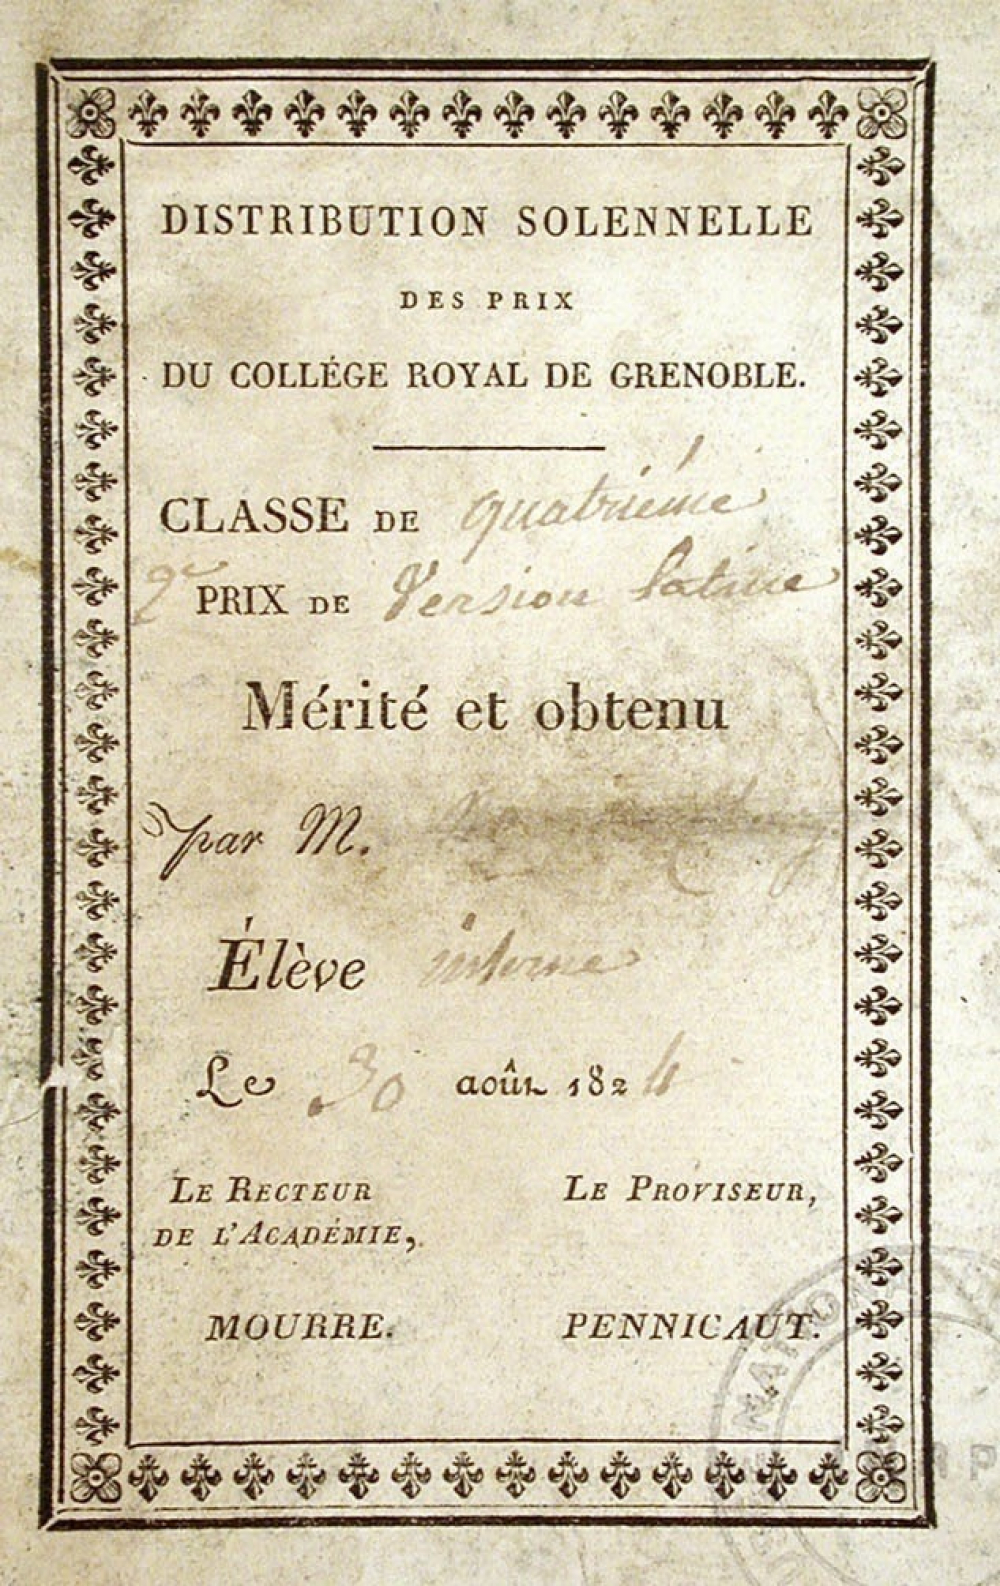 DISTRIBUTION SOLENNELLE
DES PRIX
DU COLLÉGE ROYAL DE GRENOBLE.
CLASSE DE quatriéme
2e PRIX DE Version latine
Mérité et obtenu
par M.
Élève interne
Le 30 août 1824
LE RECTEUR
DE L'ACADÉMIE,
LE PROVISEUR,
MOURRE.
PENNICAUT.